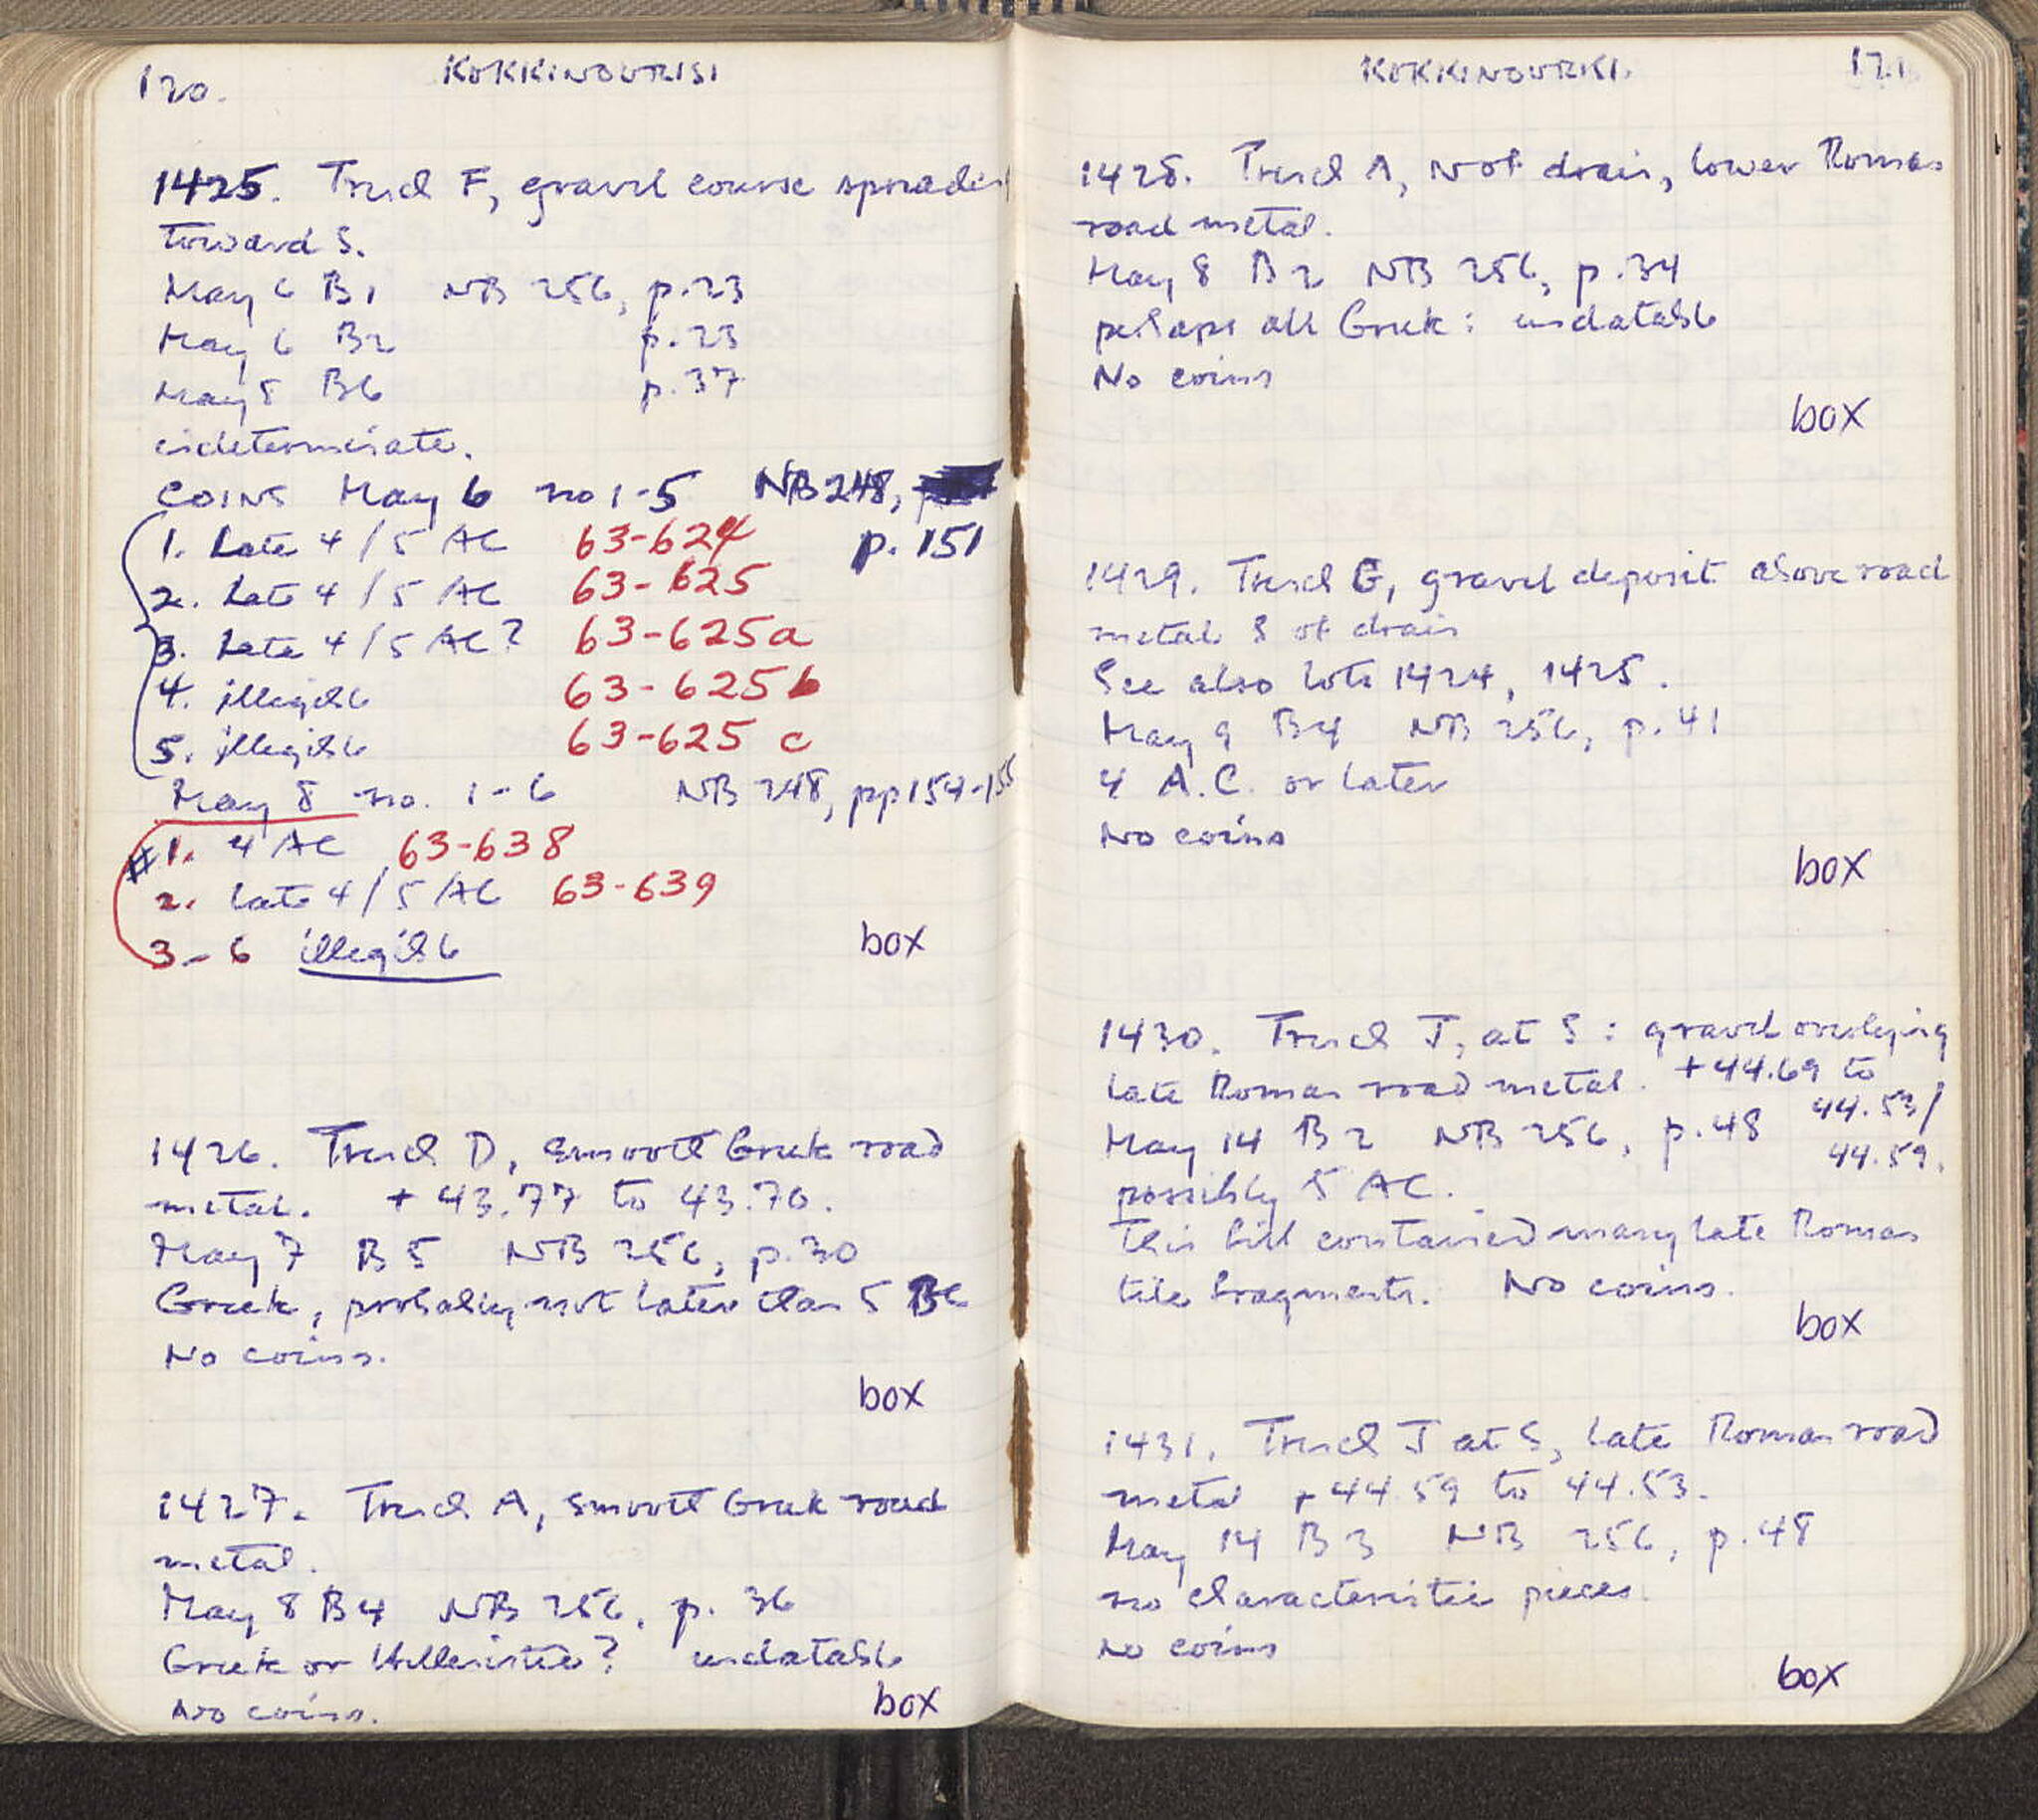 120.
KOKKINOVRISI
1425. Trench F, gravel course spreading
toward S.
May 6 B1 NB 256, p.23
May 6 B2 p.23
May 8 B6 p.37
indeterminate.
COINS May 6 no 1-5 NB 248,
p. 151
1. Late 4/5 AC 63-624
2. Late 4/5 AC 63-625
3. Late 4/5 AC? 63-625a
4. illegible 63-625b
5. illegible 63-625c
May 8 no. 1-6 NB 248, pp 154-155
#1. 4 AC 63-638
2. Late 4/5 AC 63-639
3-6 illegible
box
1426. Trench D, smooth Greek road
metal. +43.77 to 43.70.
May 7 B5 NB 256, p.30
Greek, probably not later than 5 BC
No coins.
box
1427. Trench A, smooth Greek road
metal.
May 8 B4 NB 256, p. 36
Greek or Hellenistic? undatable
No coins.
box
KOKKINOVRISI.
121
1428. Trench A, N of drain, lower Roman
road metal.
May 8 B2 NB 256, p.34
perhaps all Greek: undatable
No coins
box
1429. Trench G, gravel deposit above road
metal S of drain
See also lots 1424, 1425.
May 9 B4 NB 256, p.41
4 A.C. or later
No coins
box
1430. Trench J, at S: gravel overlying
late Roman road metal. +44.69 to
44.53/
May 14 B2 NB 256, p.48
44.59.
possibly 5 AC.
This fill contained many late Roman
tile fragments. No coins.
box
1431. Trench J at S, late Roman road
metal +44.59 to 44.53.
May 14 B3 NB 256, p.48
no characteristic pieces.
No coins
box